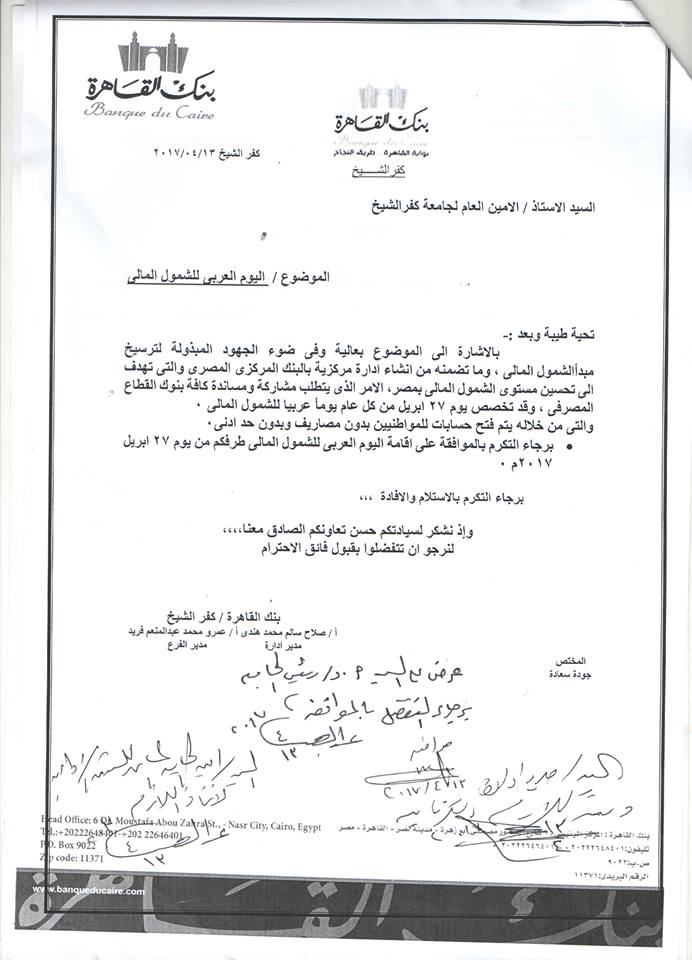 بنك القاهرة
Banque du Caire
بنك القاهرة
Banque du Caire
بوابة القاهرة طريق النجاح
كفر الشـــيخ
كفر الشيخ ٢٠١٧/٠٤/١٣
السيد الاستاذ / الامين العام لجامعة كفرالشيخ
الموضوع / اليوم العربى للشمول المالى
تحية طيبة وبعد :-
بالاشارة الى الموضوع بعالية وفى ضوء الجهود المبذولة لترسيخ
مبدأالشمول المالى ، وما تضمنه من انشاء ادارة مركزية بالبنك المركزى المصرى والتى تهدف
الى تحسين مستوى الشمول المالى بمصر، الامر الذى يتطلب مشاركة ومساندة كافة بنوك القطاع
المصرفى ، وقد تخصص يوم ٢٧ ابريل من كل عام يوماً عربيا للشمول المالى ٠
والتى من خلاله يتم فتح حسابات للمواطنيين بدون مصاريف وبدون حد ادنى٠
• برجاء التكرم بالموافقة على اقامة اليوم العربى للشمول المالى طرفكم من يوم ٢٧ ابريل
٢٠١٧م ٠
برجاء التكرم بالاستلام والافادة ,,,
وإذ نشكر لسيادتكم حسن تعاونكم الصادق معنا,,,,
لنرجو ان تتفضلوا بقبول فائق الاحترام
بنك القاهرة / كفر الشيخ
أ / صلاح سالم محمد هندى أ / عمرو محمد عبدالمنعم فريد
مدير ادارة مدير الفرع
المختص
جودة سعادة
عرض على السيد أ.د/ رئيس الجامعة
برجاء التفضل بالموافقة
٢٠١٧
٤
١٣
السيد /
٢٠١٧/٤/١٣
Head Office: 6 Dr. Moustafa Abou Zahra St., - Nasr City, Cairo, Egypt
Tel.:+20222648401-+202 22646401
P.O. Box 9022
Zip code: 11371
بنك القاهرة : المركز الرئيسى
أبو زهرة - مدينة نصر - القاهرة - مصر
تليفون: ٢٠٢٢٢٦٤٨٤٠١+
ص.ب: ٩٠٢٢
الرقم البريدى: ١١٣٧١
www.banqueducaire.com
بنك القاهرة